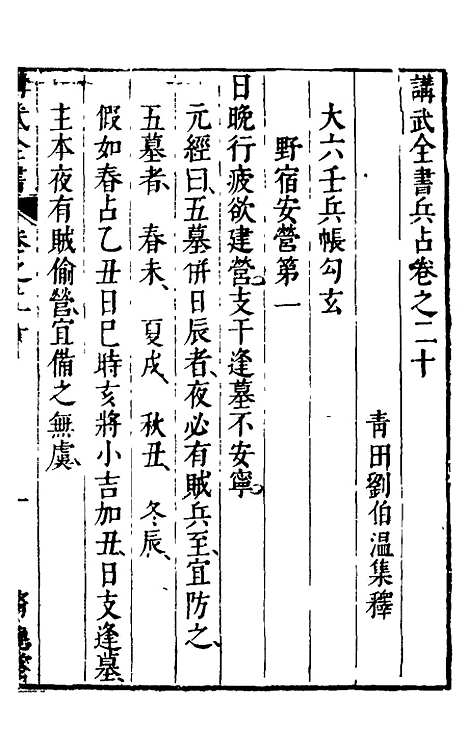 講武全書兵占卷之二十
青田劉伯溫集釋
大六壬兵帳勾玄
野宿安營第一
日晚行疲欲建營支干逢墓不安寧
元經曰、五墓併日辰者、夜必有賊兵至、宜防之、
五墓者、春未、夏戌、秋丑、冬辰、
假如春占乙丑日巳時亥將小吉加丑、日支逢墓、
主本夜有賊偷營、宜備之無虞、
講武全書
卷之二十
一